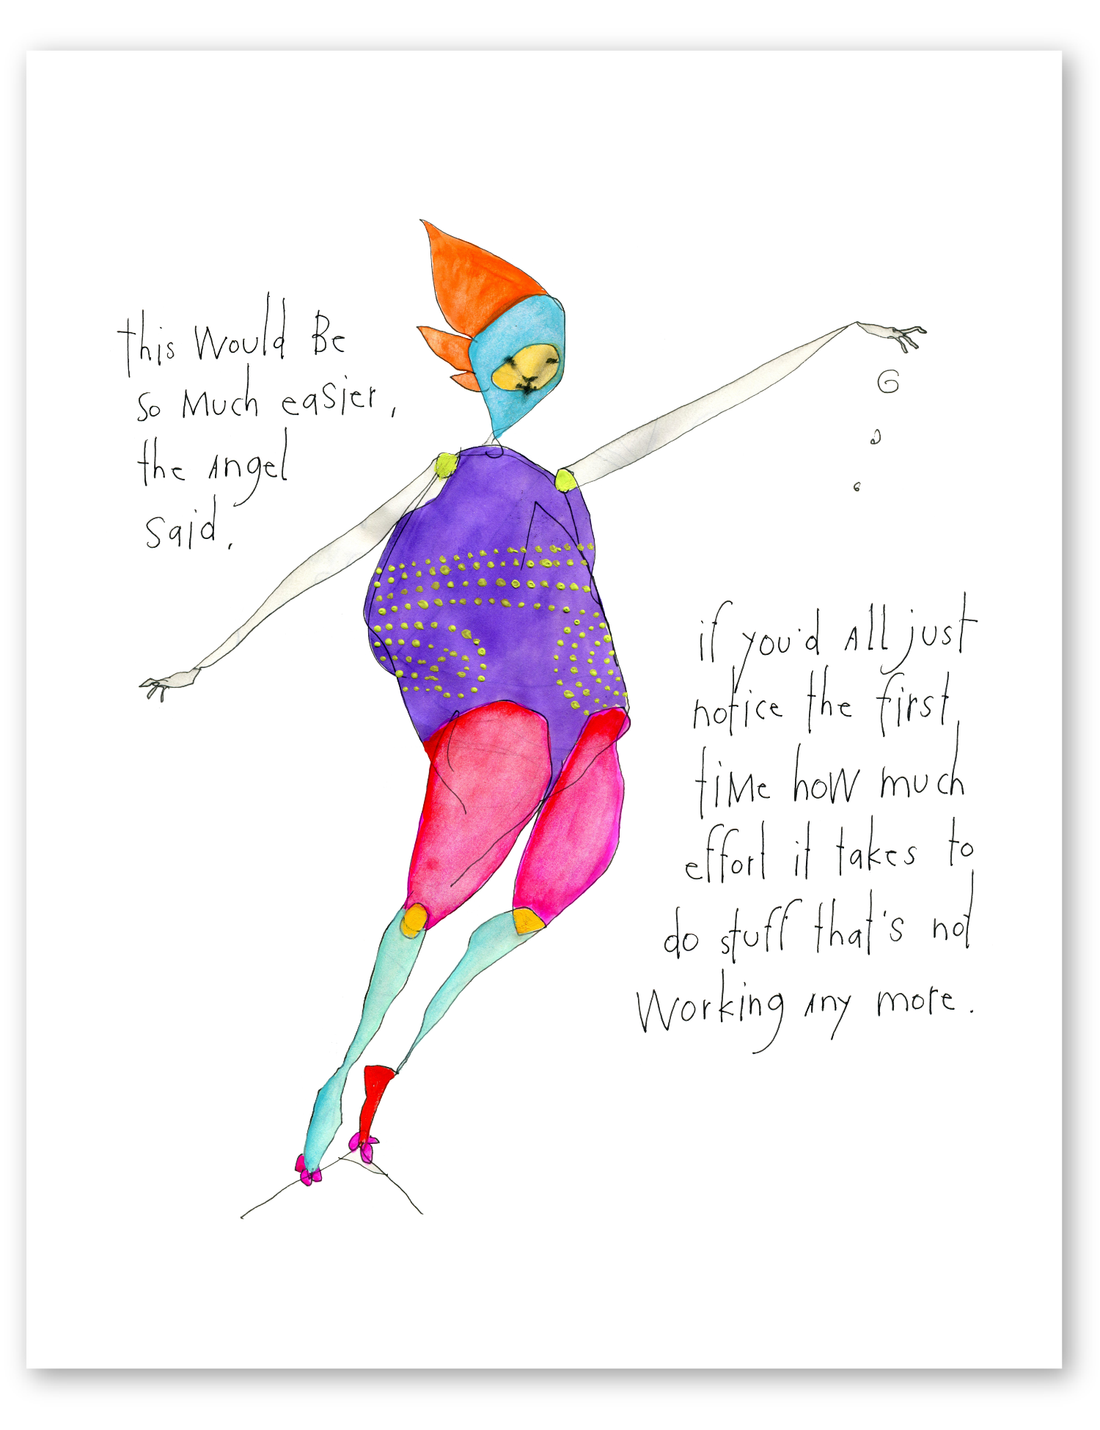 this would Be
so Much easier,
the Angel
said.
if you'd All just
notice the first
tiMe how much
effort it takes to
do stuff that's not
working Any more.